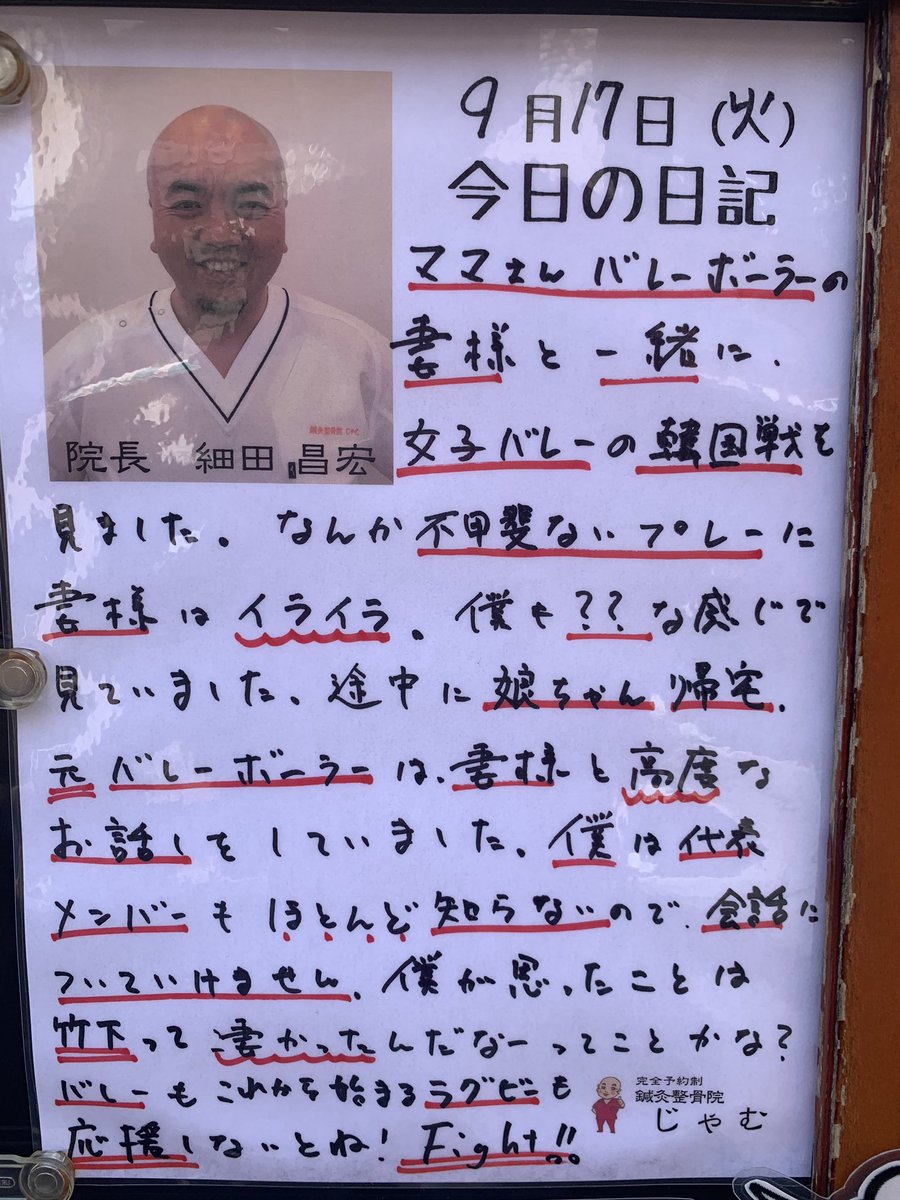 9月17日(火)
今日の日記
ママさんバレーボーラーの
妻様と一緒に、
女子バレーの韓国戦を
見ました。なんか不甲斐ないプレーに
妻様はイライラ。僕も??な感じで
見ていました。途中に娘ちゃん帰宅。
元バレーボーラーは、妻様と高度な
お話しをしていました。僕は代表
メンバーもほとんど知らないので、会話に
ついていけません。僕が思ったことは
竹下って凄かったんだなーってことかな?
バレーもこれから始まるラグビーも
応援しないとね! Fight!!
鍼灸整骨院
院長 細田 昌宏
完全予約制
鍼灸整骨院
じゃむ